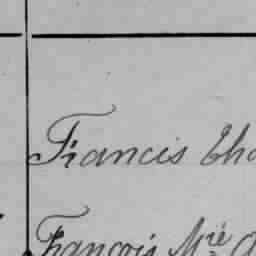 Francis Cha
François Mré